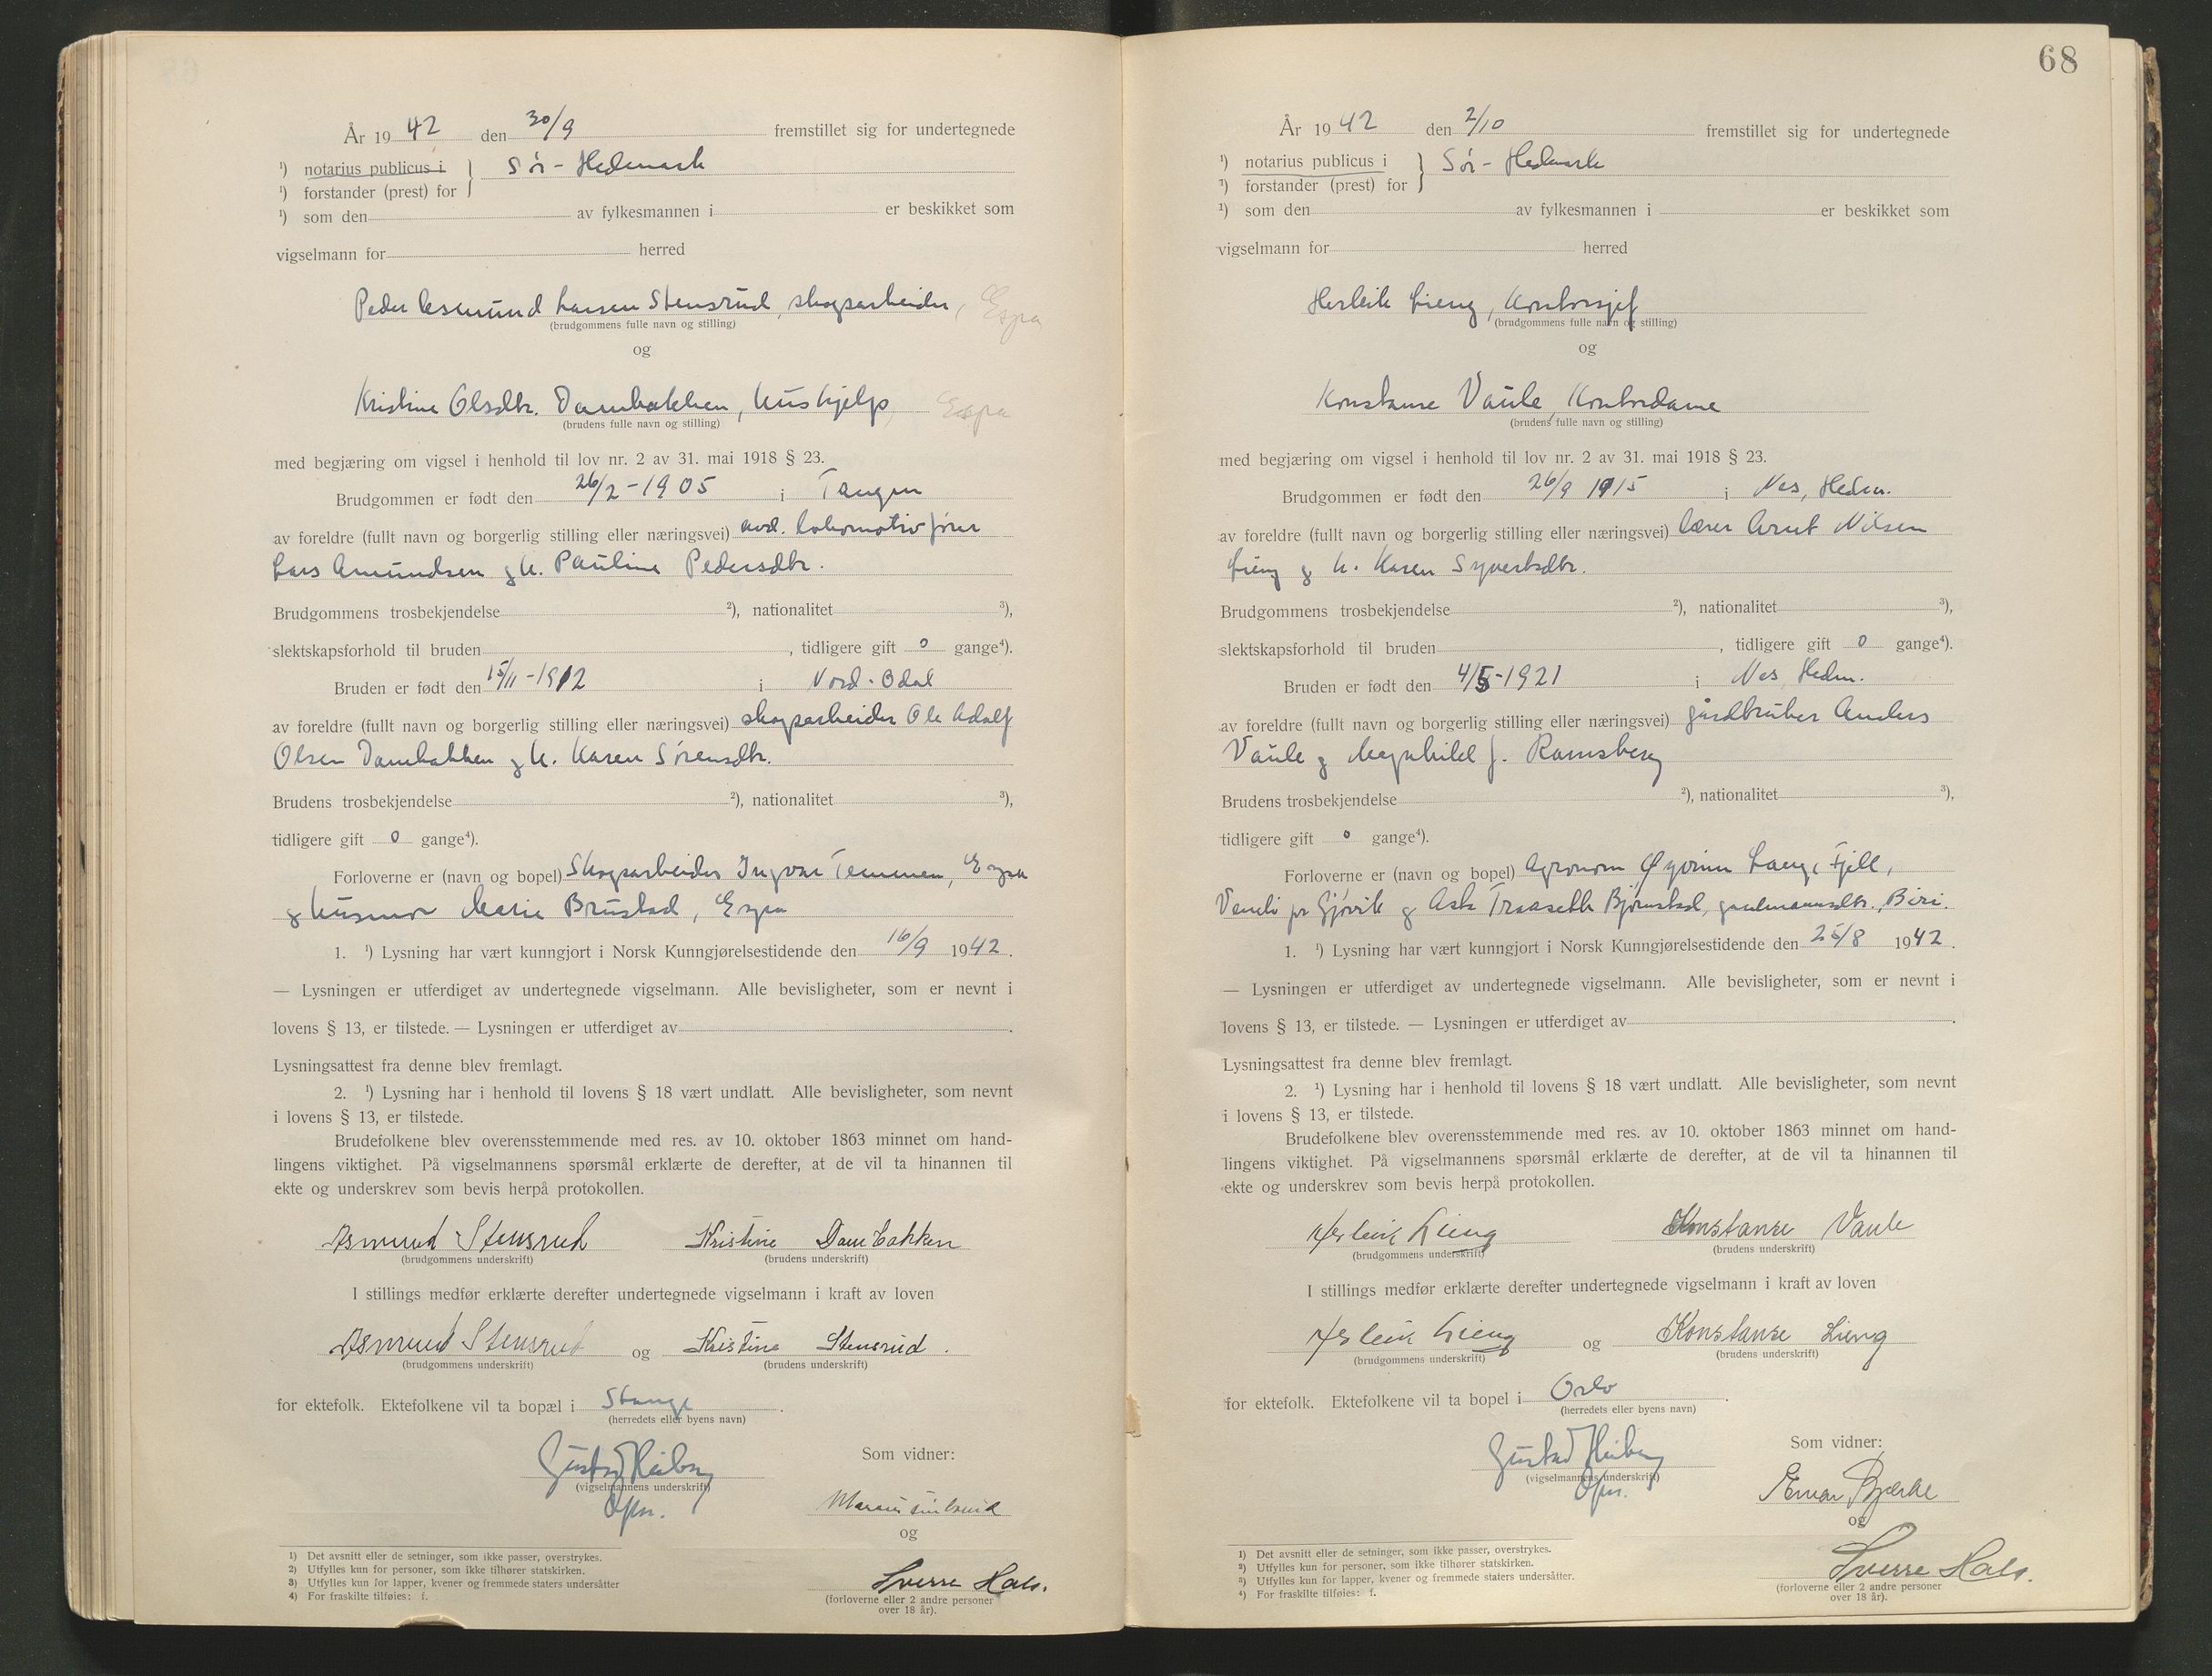 År 1942 den 30/9 fremstillet sig for undertegnede
¹) notarius publicus i } Sør-Hedmark
¹) forstander (prest) for
¹) som den av fylkesmannen i er beskikket som
vigselmann for herred
Peder Asmund Larsen Stensrud, skogsarbeider, Espa
(brudgommens fulle navn og stilling)
og
Kristine Olsdtr. Dambakken, hushjelp, Espa
(brudens fulle navn og stilling)
med begjæring om vigsel i henhold til lov nr. 2 av 31. mai 1918 § 23.
Brudgommen er født den 26/2-1905 i Tangen
av foreldre (fullt navn og borgerlig stilling eller næringsvei) avd. lokomotivfører
Lars Amundsen g h. Pauline Pedersdtr.
Brudgommens trosbekjendelse ²), nationalitet ³),
slektskapsforhold til bruden , tidligere gift 0 gange⁴).
Bruden er født den 15/11-1912 i Nord-Odal
av foreldre (fullt navn og borgerlig stilling eller næringsvei) skogsarbeider Ole Adolf
Olsen Dambakken g h. Karen Sørensdtr.
Brudens trosbekjendelse ²), nationalitet ³),
tidligere gift 0 gange⁴).
Forloverne er (navn og bopel) Skogsarbeider Ingvar Temmen, Espa
g husmor Marie Brustad, Espa
1. ¹) Lysning har vært kunngjort i Norsk Kunngjørelsestidende den 16/9 1942.
— Lysningen er utferdiget av undertegnede vigselmann. Alle bevisligheter, som er nevnt i
lovens § 13, er tilstede. — Lysningen er utferdiget av .
Lysningsattest fra denne blev fremlagt.
2. ¹) Lysning har i henhold til lovens § 18 vært undlatt. Alle bevisligheter, som nevnt
i lovens § 13, er tilstede.
Brudefolkene blev overensstemmende med res. av 10. oktober 1863 minnet om hand-
lingens viktighet. På vigselmannens spørsmål erklærte de derefter, at de vil ta hinannen til
ekte og underskrev som bevis herpå protokollen.
Asmund Stensrud Kristine Dambakken
(brudgommens underskrift) (brudens underskrift)
I stillings medfør erklærte derefter undertegnede vigselmann i kraft av loven
Asmund Stensrud og Kristine Stensrud.
(brudgommens underskrift) (brudens underskrift)
for ektefolk. Ektefolkene vil ta bopæl i Stange .
(herredets eller byens navn)
Gustav Heiberg Som vidner:
(vigselmannens underskrift)
Marius
og
Sverre Hals.
(forloverne eller 2 andre personer
over 18 år).
1) Det avsnitt eller de setninger, som ikke passer, overstrykes.
2) Utfylles kun for personer, som ikke tilhører statskirken.
3) Utfylles kun for lapper, kvener og fremmede staters undersåtter
4) For fraskilte tilføies: f.
68
År 1942 den 2/10 fremstillet sig for undertegnede
¹) notarius publicus i } Sør-Hedmark
¹) forstander (prest) for
¹) som den av fylkesmannen i er beskikket som
vigselmann for herred
Herleik Lieng, kontorsjef
(brudgommens fulle navn og stilling)
og
Konstanse Vaule, kontordame
(brudens fulle navn og stilling)
med begjæring om vigsel i henhold til lov nr. 2 av 31. mai 1918 § 23.
Brudgommen er født den 26/9 1915 i Nes, Hedm.
av foreldre (fullt navn og borgerlig stilling eller næringsvei) lærer Arnt Nilsen
Lieng g h. Karen Syvertsdtr.
Brudgommens trosbekjendelse ²), nationalitet ³),
slektskapsforhold til bruden , tidligere gift 0 gange⁴).
Bruden er født den 4/5-1921 i Nes, Hedm.
av foreldre (fullt navn og borgerlig stilling eller næringsvei) gårdbruker Anders
Vaule g Magnhild f. Ramsberg
Brudens trosbekjendelse ²), nationalitet ³),
tidligere gift 0 gange⁴).
Forloverne er (navn og bopel) Agronom Øyvinn Lange Fjell,
pr Gjøvik g Bjørnstad, gardmannsdtr., Biri.
1. ¹) Lysning har vært kunngjort i Norsk Kunngjørelsestidende den 25/8 1942.
— Lysningen er utferdiget av undertegnede vigselmann. Alle bevisligheter, som er nevnt i
lovens § 13, er tilstede. — Lysningen er utferdiget av .
Lysningsattest fra denne blev fremlagt.
2. ¹) Lysning har i henhold til lovens § 18 vært undlatt. Alle bevisligheter, som nevnt
i lovens § 13, er tilstede.
Brudefolkene blev overensstemmende med res. av 10. oktober 1863 minnet om hand-
lingens viktighet. På vigselmannens spørsmål erklærte de derefter, at de vil ta hinannen til
ekte og underskrev som bevis herpå protokollen.
Herleik Lieng Konstanse Vaule
(brudgommens underskrift) (brudens underskrift)
I stillings medfør erklærte derefter undertegnede vigselmann i kraft av loven
Herleik Lieng og Konstanse Lieng
(brudgommens underskrift) (brudens underskrift)
for ektefolk. Ektefolkene vil ta bopel i Oslo .
(herredets eller byens navn)
Gustav Heiberg Som vidner:
(vigselmannens underskrift)
Einar Bjerke
og
Sverre Hals.
(forloverne eller 2 andre personer
over 18 år).
1) Det avsnitt eller de setninger, som ikke passer, overstrykes.
2) Utfylles kun for personer, som ikke tilhører statskirken.
3) Utfylles kun for lapper, kvener og fremmede staters undersåtter.
4) For fraskilte tilføies: f.